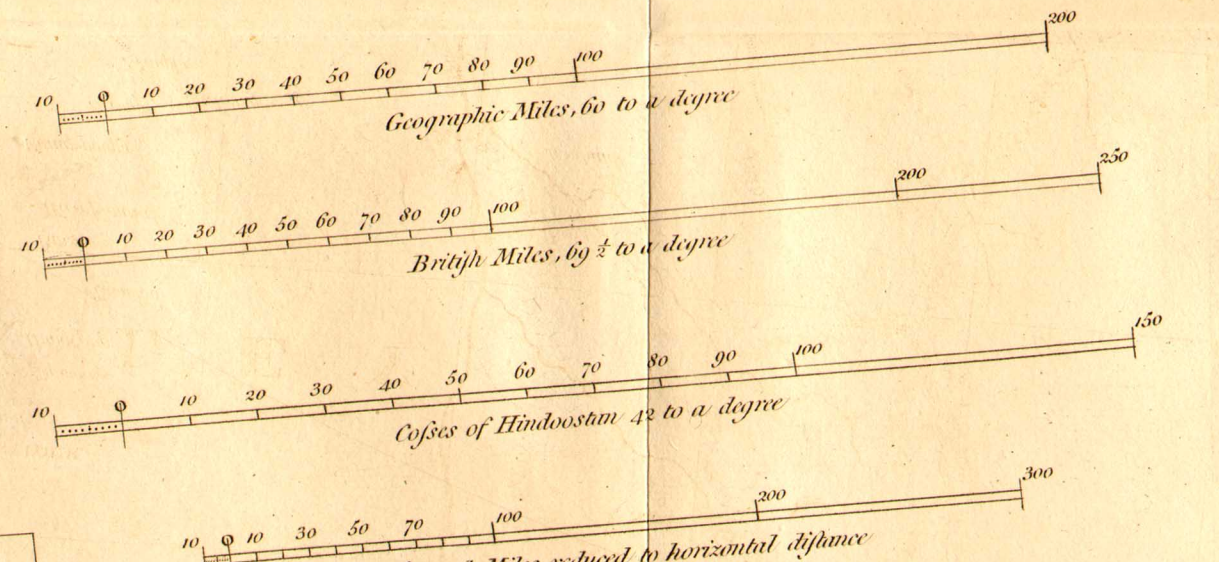 10 0 10 20 30 40 50 60 70 80 90 100 200
Geographic Miles, 60 to a degree
10 0 10 20 30 40 50 60 70 80 90 100 200 250
Britiſh Miles, 69 1/2 to a degree
10 0 10 20 30 40 50 60 70 80 90 100 150
Coſses of Hindoostan 42 to a degree
10 0 10 30 50 70 100 200 300
Miles reduced to horizontal diſtance